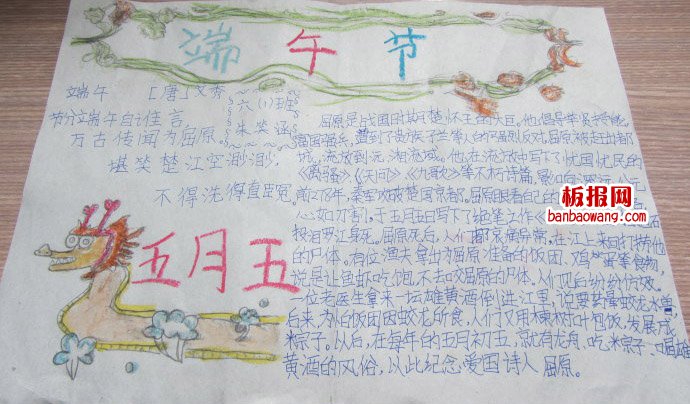 端午节
端午 [唐]文秀
六(1)班
节分端午自谁言
万古传闻为屈原
堪笑楚江空渺渺
不得洗得直臣冤
五月五
屈原是战国时期楚怀王的大臣。他倡导举贤授能,
富国强兵,遭到了贵族子兰等人的强烈反对,屈原被赶出都
流放到沅、湘流域。他在流放中写下了忧国忧民的
《离骚》《天问》《九歌》等不朽诗篇,影响深远。公元
前278年,秦军攻破楚国京都。屈原眼看自己的
心如刀割,于五月五日写下了绝笔工作《
投汨罗江身死。屈原死后,人们都哀痛异常,在江上来回打捞他
的尸体。有位渔夫拿出为屈原准备的饭团、鸡蛋等食物,
说是让鱼虾吃饱,不去咬屈原的尸体,人们见后纷纷仿效,
一位老医生拿来一坛雄黄酒倒进江里,说要药晕蛟龙水兽,
后来,为怕饭团因蛟龙所食,人们又用楝树叶包饭,发展成
米宗子。从后,在每年的五月初五,就有龙舟、吃米宗子、喝雄
黄酒的风俗,以此纪念爱国诗人屈原。
板报网
banbaowang.com